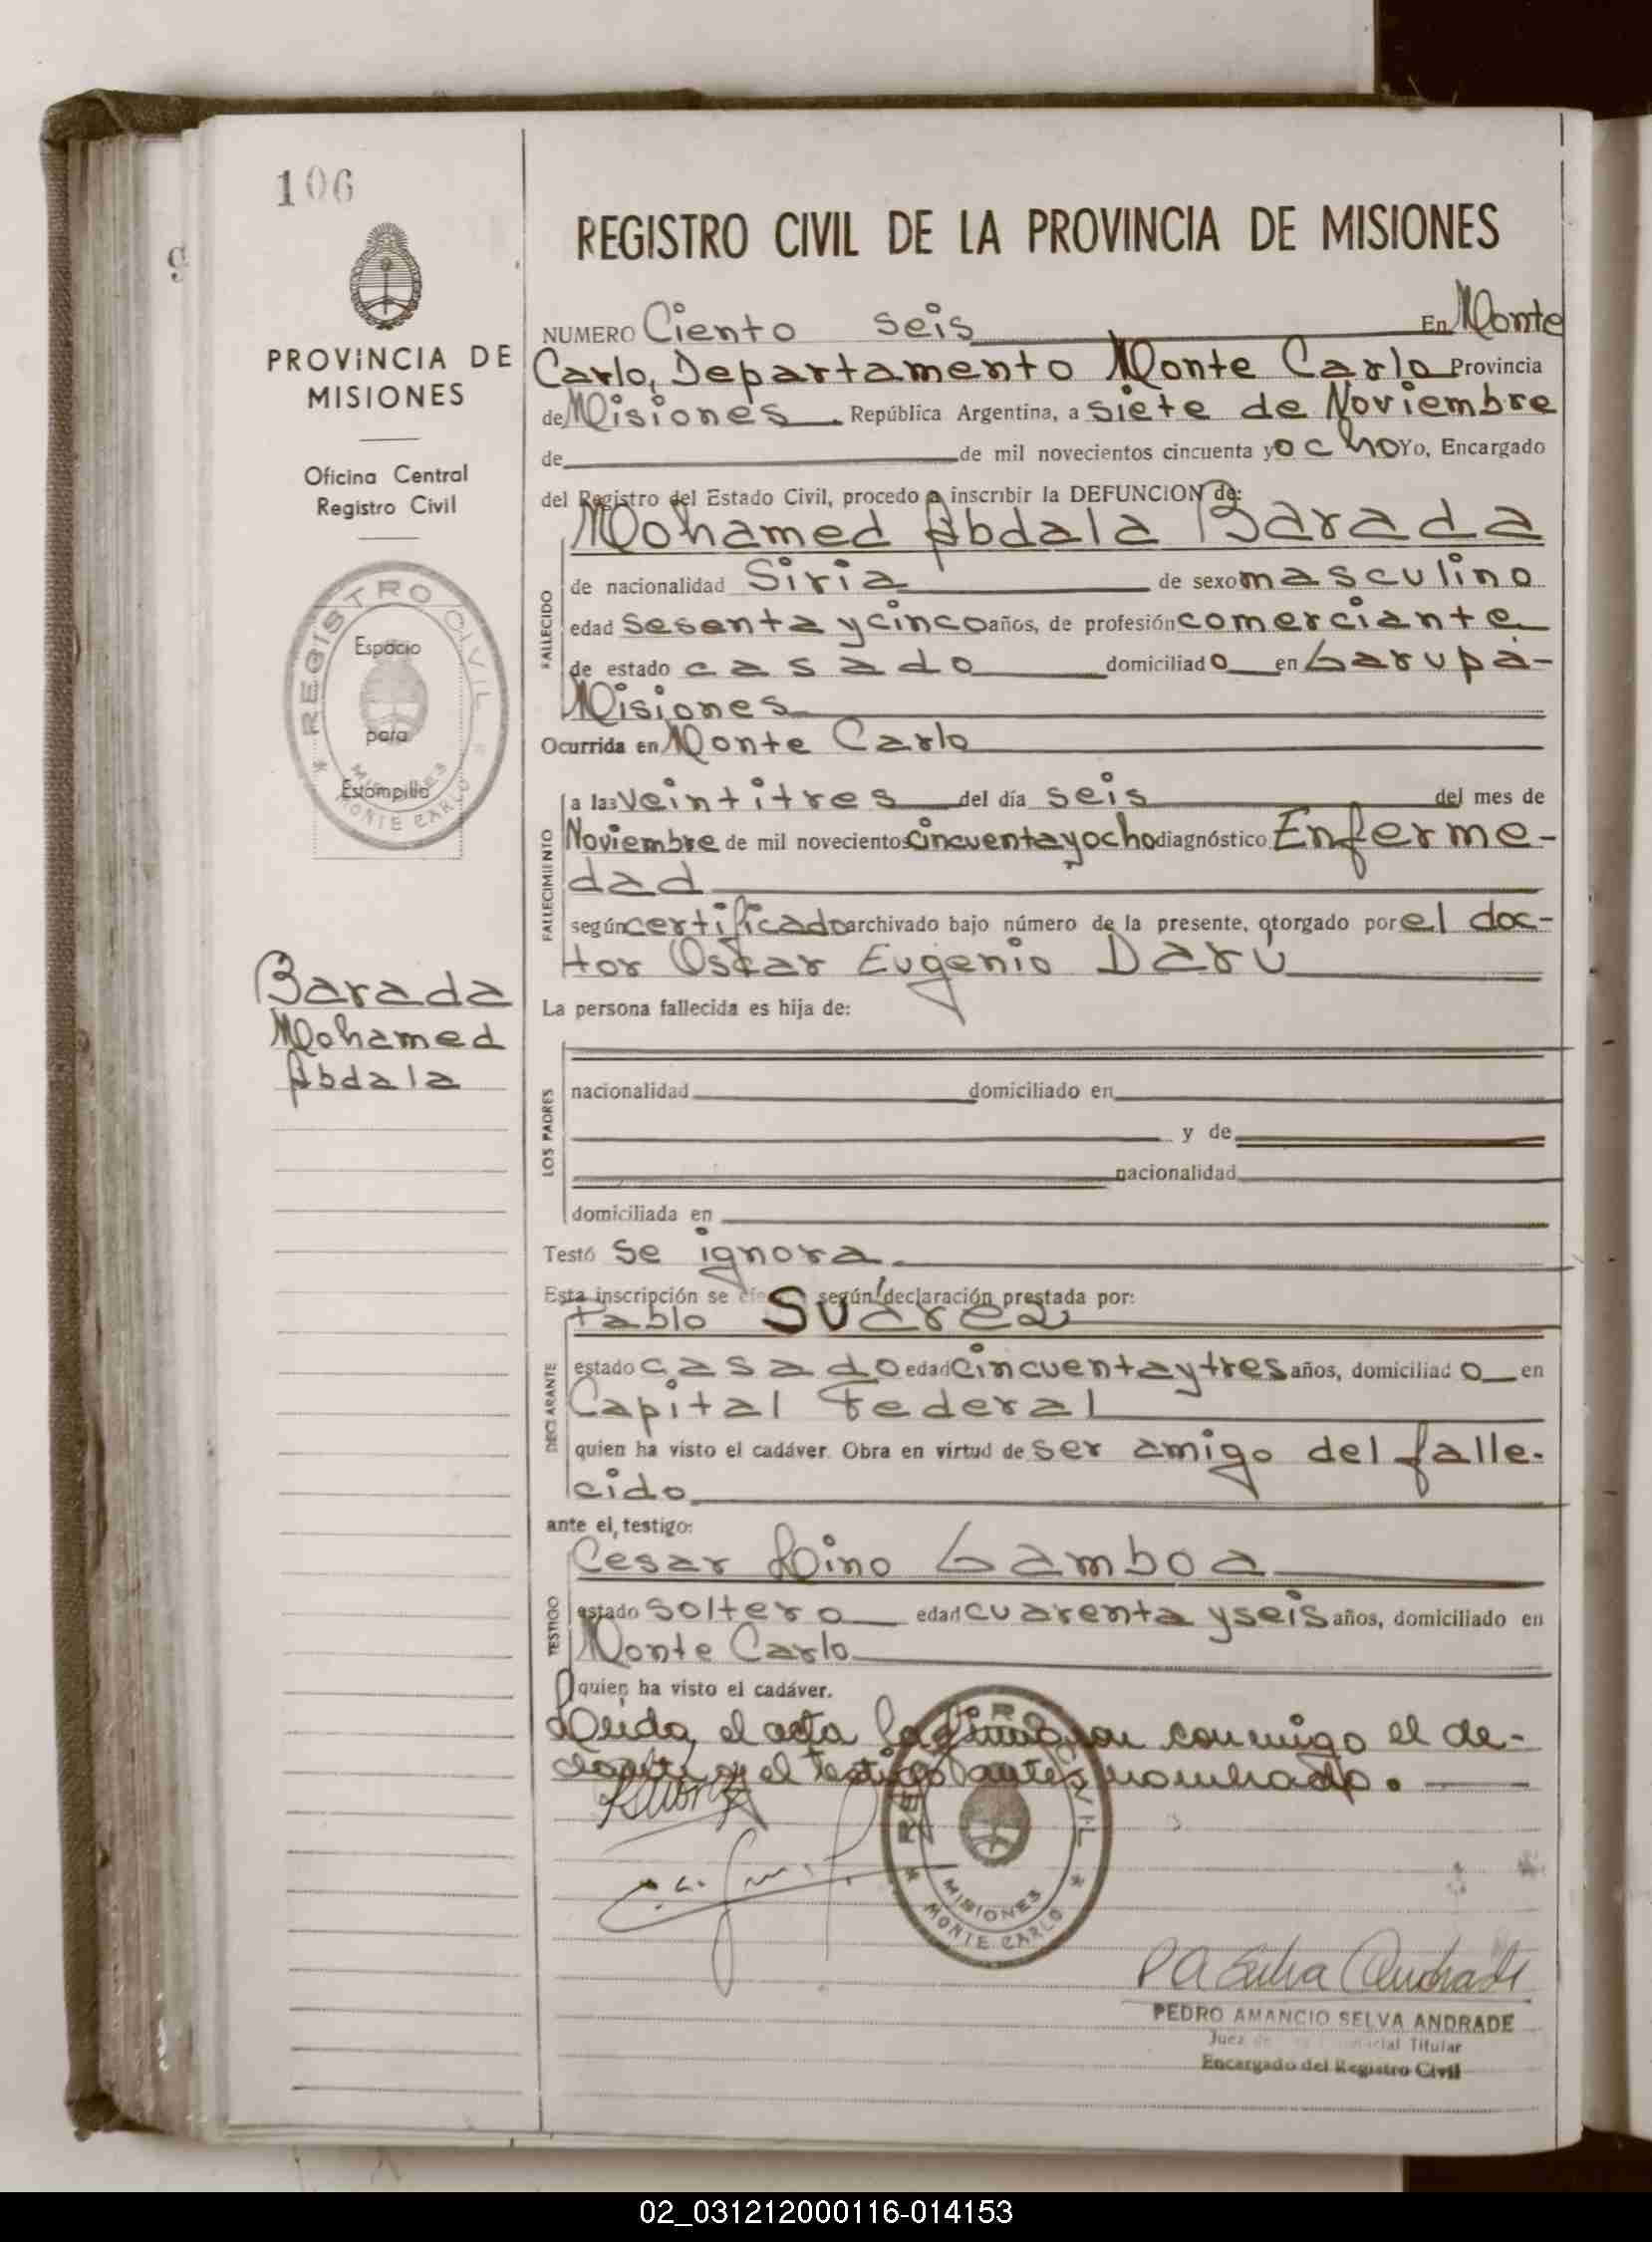 106
9
PROVINCIA DE
MISIONES
Oficina Central
Registro Civil
REGISTRO CIVIL
Espacio
para
Estampilla
MISIONES
MONTE CARLO
Barada
Mohamed
Abdala
REGISTRO CIVIL DE LA PROVINCIA DE MISIONES
NUMERO Ciento seis En Monte
Carlo, Departamento Monte Carlo Provincia
de Misiones. República Argentina, a siete de Noviembre
de de mil novecientos cincuenta y ocho Yo, Encargado
del Registro del Estado Civil, procedo a inscribir la DEFUNCION de:
Mohamed Abdala Barada
FALLECIDO
de nacionalidad Siria de sexo masculino
edad sesenta y cinco años, de profesión comerciante
de estado casado domiciliado en Garupá-
Misiones
Ocurrida en Monte Carlo
FALLECIMIENTO
a las veintitres del día seis del mes de
Noviembre de mil novecientos cincuenta y ocho diagnóstico Enferme-
dad
según certificado archivado bajo número de la presente, otorgado por el doc-
tor Oscar Eugenio Darú
La persona fallecida es hija de:
LOS PADRES
nacionalidad domiciliado en
y de
nacionalidad
domiciliada en
Testó se ignora
Esta inscripción se según declaración prestada por:
Pablo Suárez
DECLARANTE
estado casado edad cincuenta y tres años, domiciliado en
Capital Federal
quien ha visto el cadáver. Obra en virtud de ser amigo del falle-
cido
ante el testigo:
Cesar Lino Gamboa
TESTIGO
estado soltero edad cuarenta y seis años, domiciliado en
Monte Carlo
quien ha visto el cadáver.
Leida el acta la firmaron conmigo el de-
clarante y el testigo antes nombrado.
REGISTRO CIVIL
MISIONES
MONTE CARLO
PA Selva Andrade
PEDRO AMANCIO SELVA ANDRADE
Juez de Titular
Encargado del Registro Civil
02_031212000116-014153